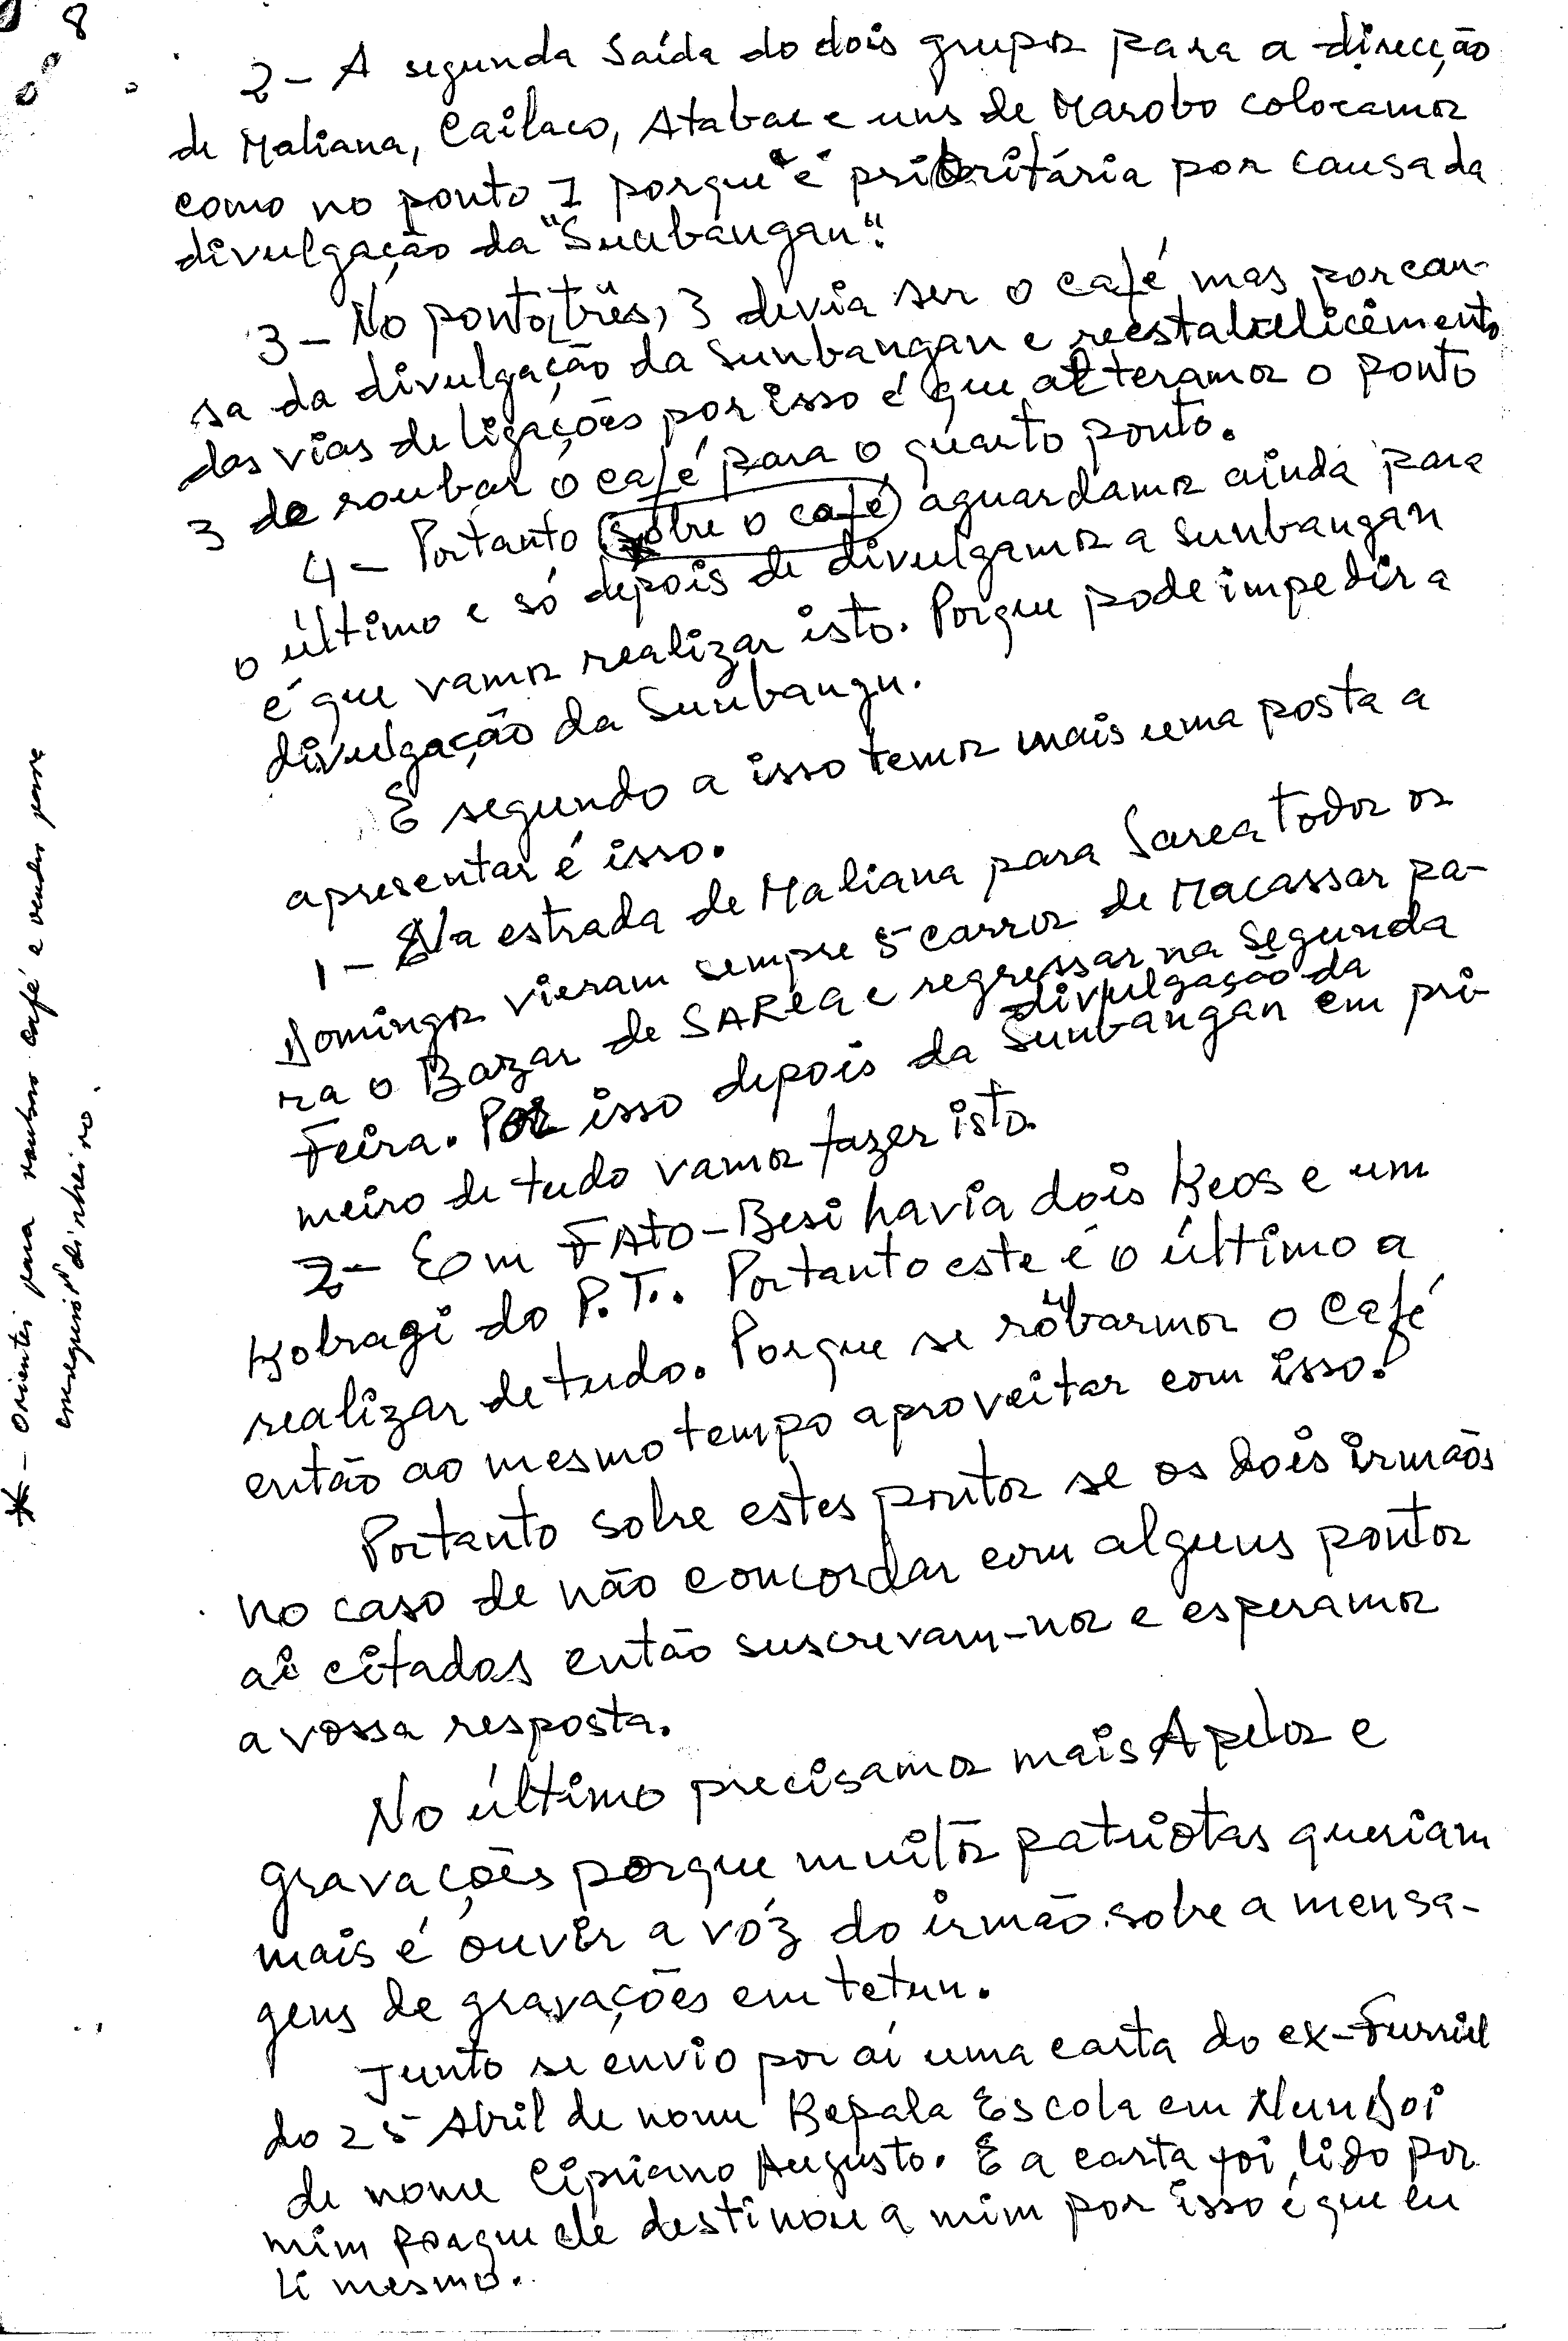 8
2 - A segunda Saída do dois grupos para a direcção
de Maliana, Cailaco, Atabae e uns de Marobo colocamos
como no ponto 1 porque é prioritária por causa da
divulgação da "Sunbangan".
3 - No ponto, três, 3 devia ser o café mas por cau-
sa da divulgação da Sunbangan e reestabelicimento
das vias de ligações por isso é que alteramos o ponto
3 de roubar o café para o quarto ponto.
4 - Portanto sobre o café aguardamos ainda para
o último e só depois de divulgamos a Sunbangan
é que vamos realizar isto. Porque pode impedir a
divulgação da Sunbangn.
E segundo a isso temos mais uma posta a
apresentar é isso.
1 - Na estrada de Maliana para Sarea todos os
Domingos vieram sempre 5 carros de Macassar pa-
ra o Bazar de SAREA e regressar na Segunda
Feira. Por isso depois da divulgação da Sunbangan em pri-
meiro de tudo vamos fazer isto.
2 - Em FATO-Besi havia dois Keos e um
Kobragi do P.T.. Portanto este é o último a
realizar de tudo. Porque se roubarmos o Café
então ao mesmo tempo aproveitar com isso.
Portanto sobre estes pontos se os dois irmãos
no caso de não concordar com alguns pontos
aí citados então suscrevam-nos e esperamos
a vossa resposta.
No último precisamos mais Apelos e
gravações porque muitos patriotas queriam
mais é ouvir a vóz do irmão sobre a mensa-
gens de gravações em tetun.
Junto se envio por aí uma carta do ex-Furriel
do 25 Abril de nome Bepala Escola em Nunboi
de nome Cipriano Augusto. E a carta foi lido por
mim porque ele destinou a mim por isso é que eu
li mesmo.
* - Orientei para roubar café e vender para
"dinheiro.